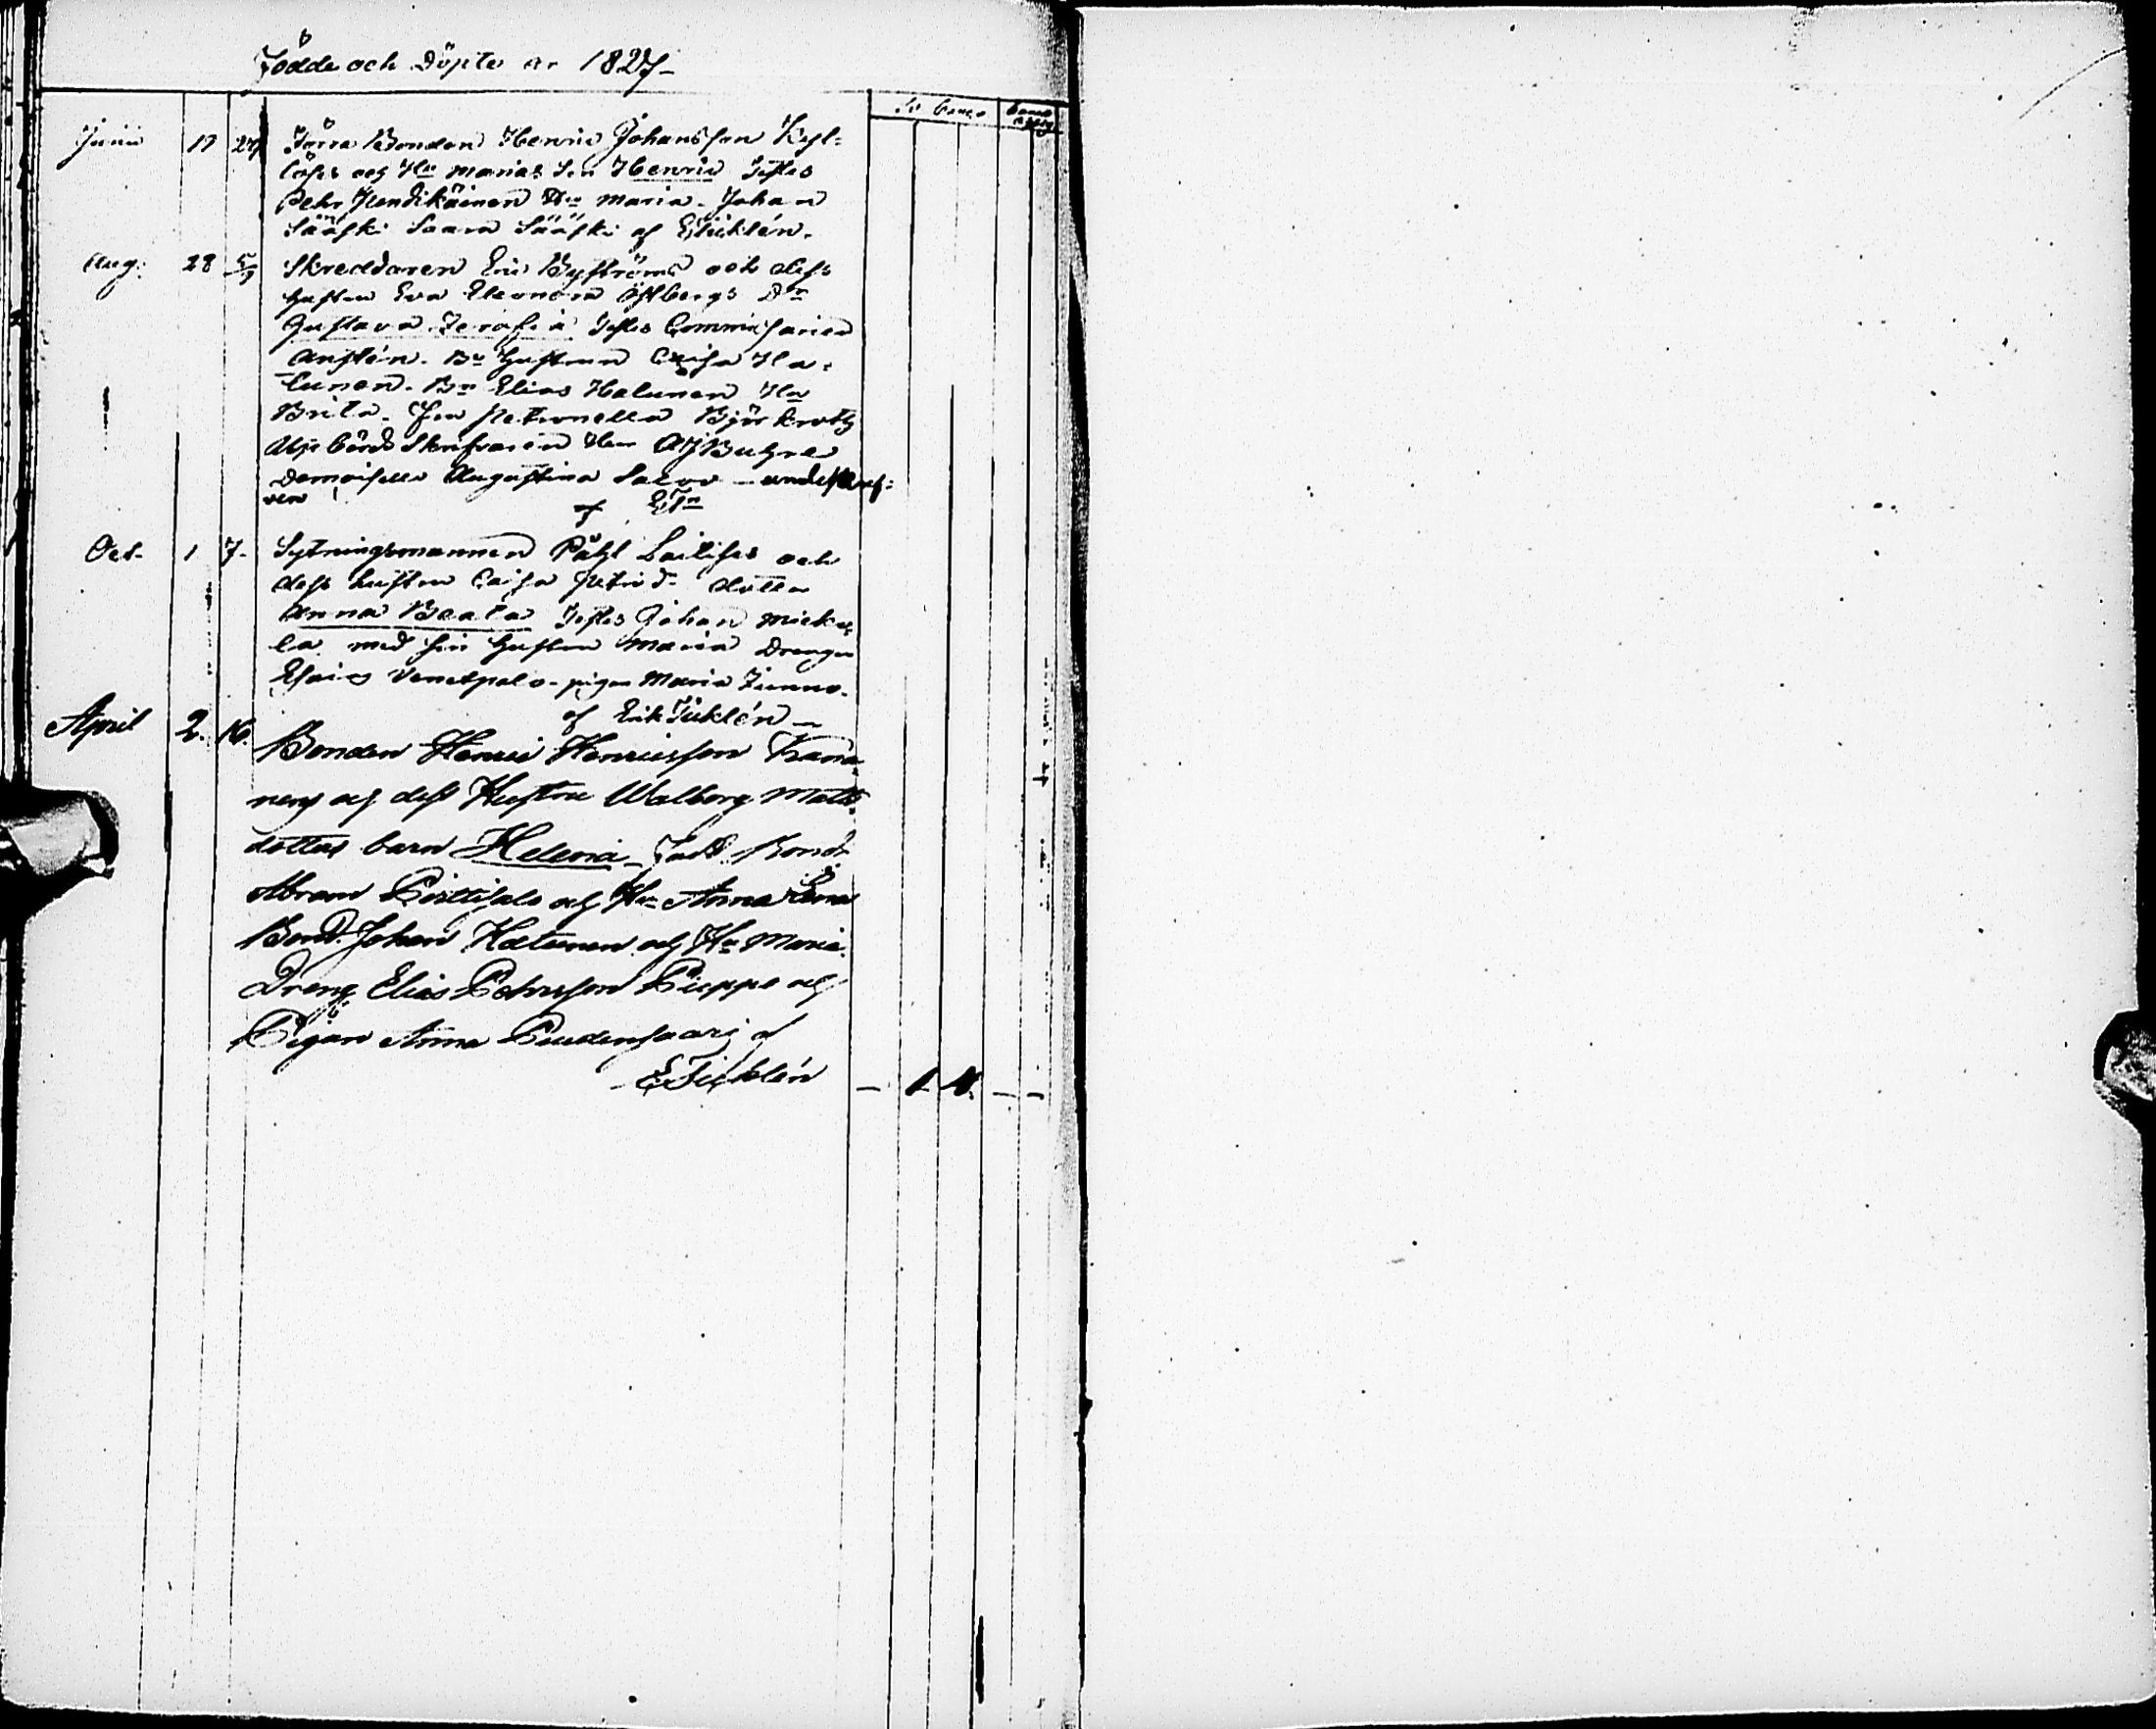 Födde och Döpte år 1827-
Sv banco banco
Junii 17 24 Förra Bonden Henric Johansson Kyl-
och Hu Marias Son Henric Testes
Pehr Hendikäinen Hu Maria. Johan
Sääski Saara Sääski af Eliciklén.
Aug. 28 5/9 Skreddaren Eric Byströms och dess
hustru Eva Eleonora Östbergs Dr
Gustava Serafia Testes Commissarien
Anstén. Bn hustrun Cajsa Ha-
lunen. Bn Elias Halunen Hu
Brita. Petronella Björk
Skrifvaren Herr Buhre
Demoiselle Augustina
ven
af ETn
Oct. 1 7. Sytningsmannen Påhl Lailises och
dess hustru Caisa Petrid. dotter
Anna Beata Testes Johan Micke
la med sin hustru Maria Drengen
Esaias Venetpalo. pigan Maria Junno.
af Erik Ticklén -
April 2. 16. Bonden Henric Henricsson Kana-
nens och dess Hustru Walborg Matts
dotters barn Helena - Fadd. Bond.
Abram Pirttisalo och Hu Anna Lena
Bond. Johan Halunen och Hu Maria.
Dreng. Elias Pehrsson Pieppo och
Pigan Anna Leudensaari af
E Ticklén - 1 16. - -